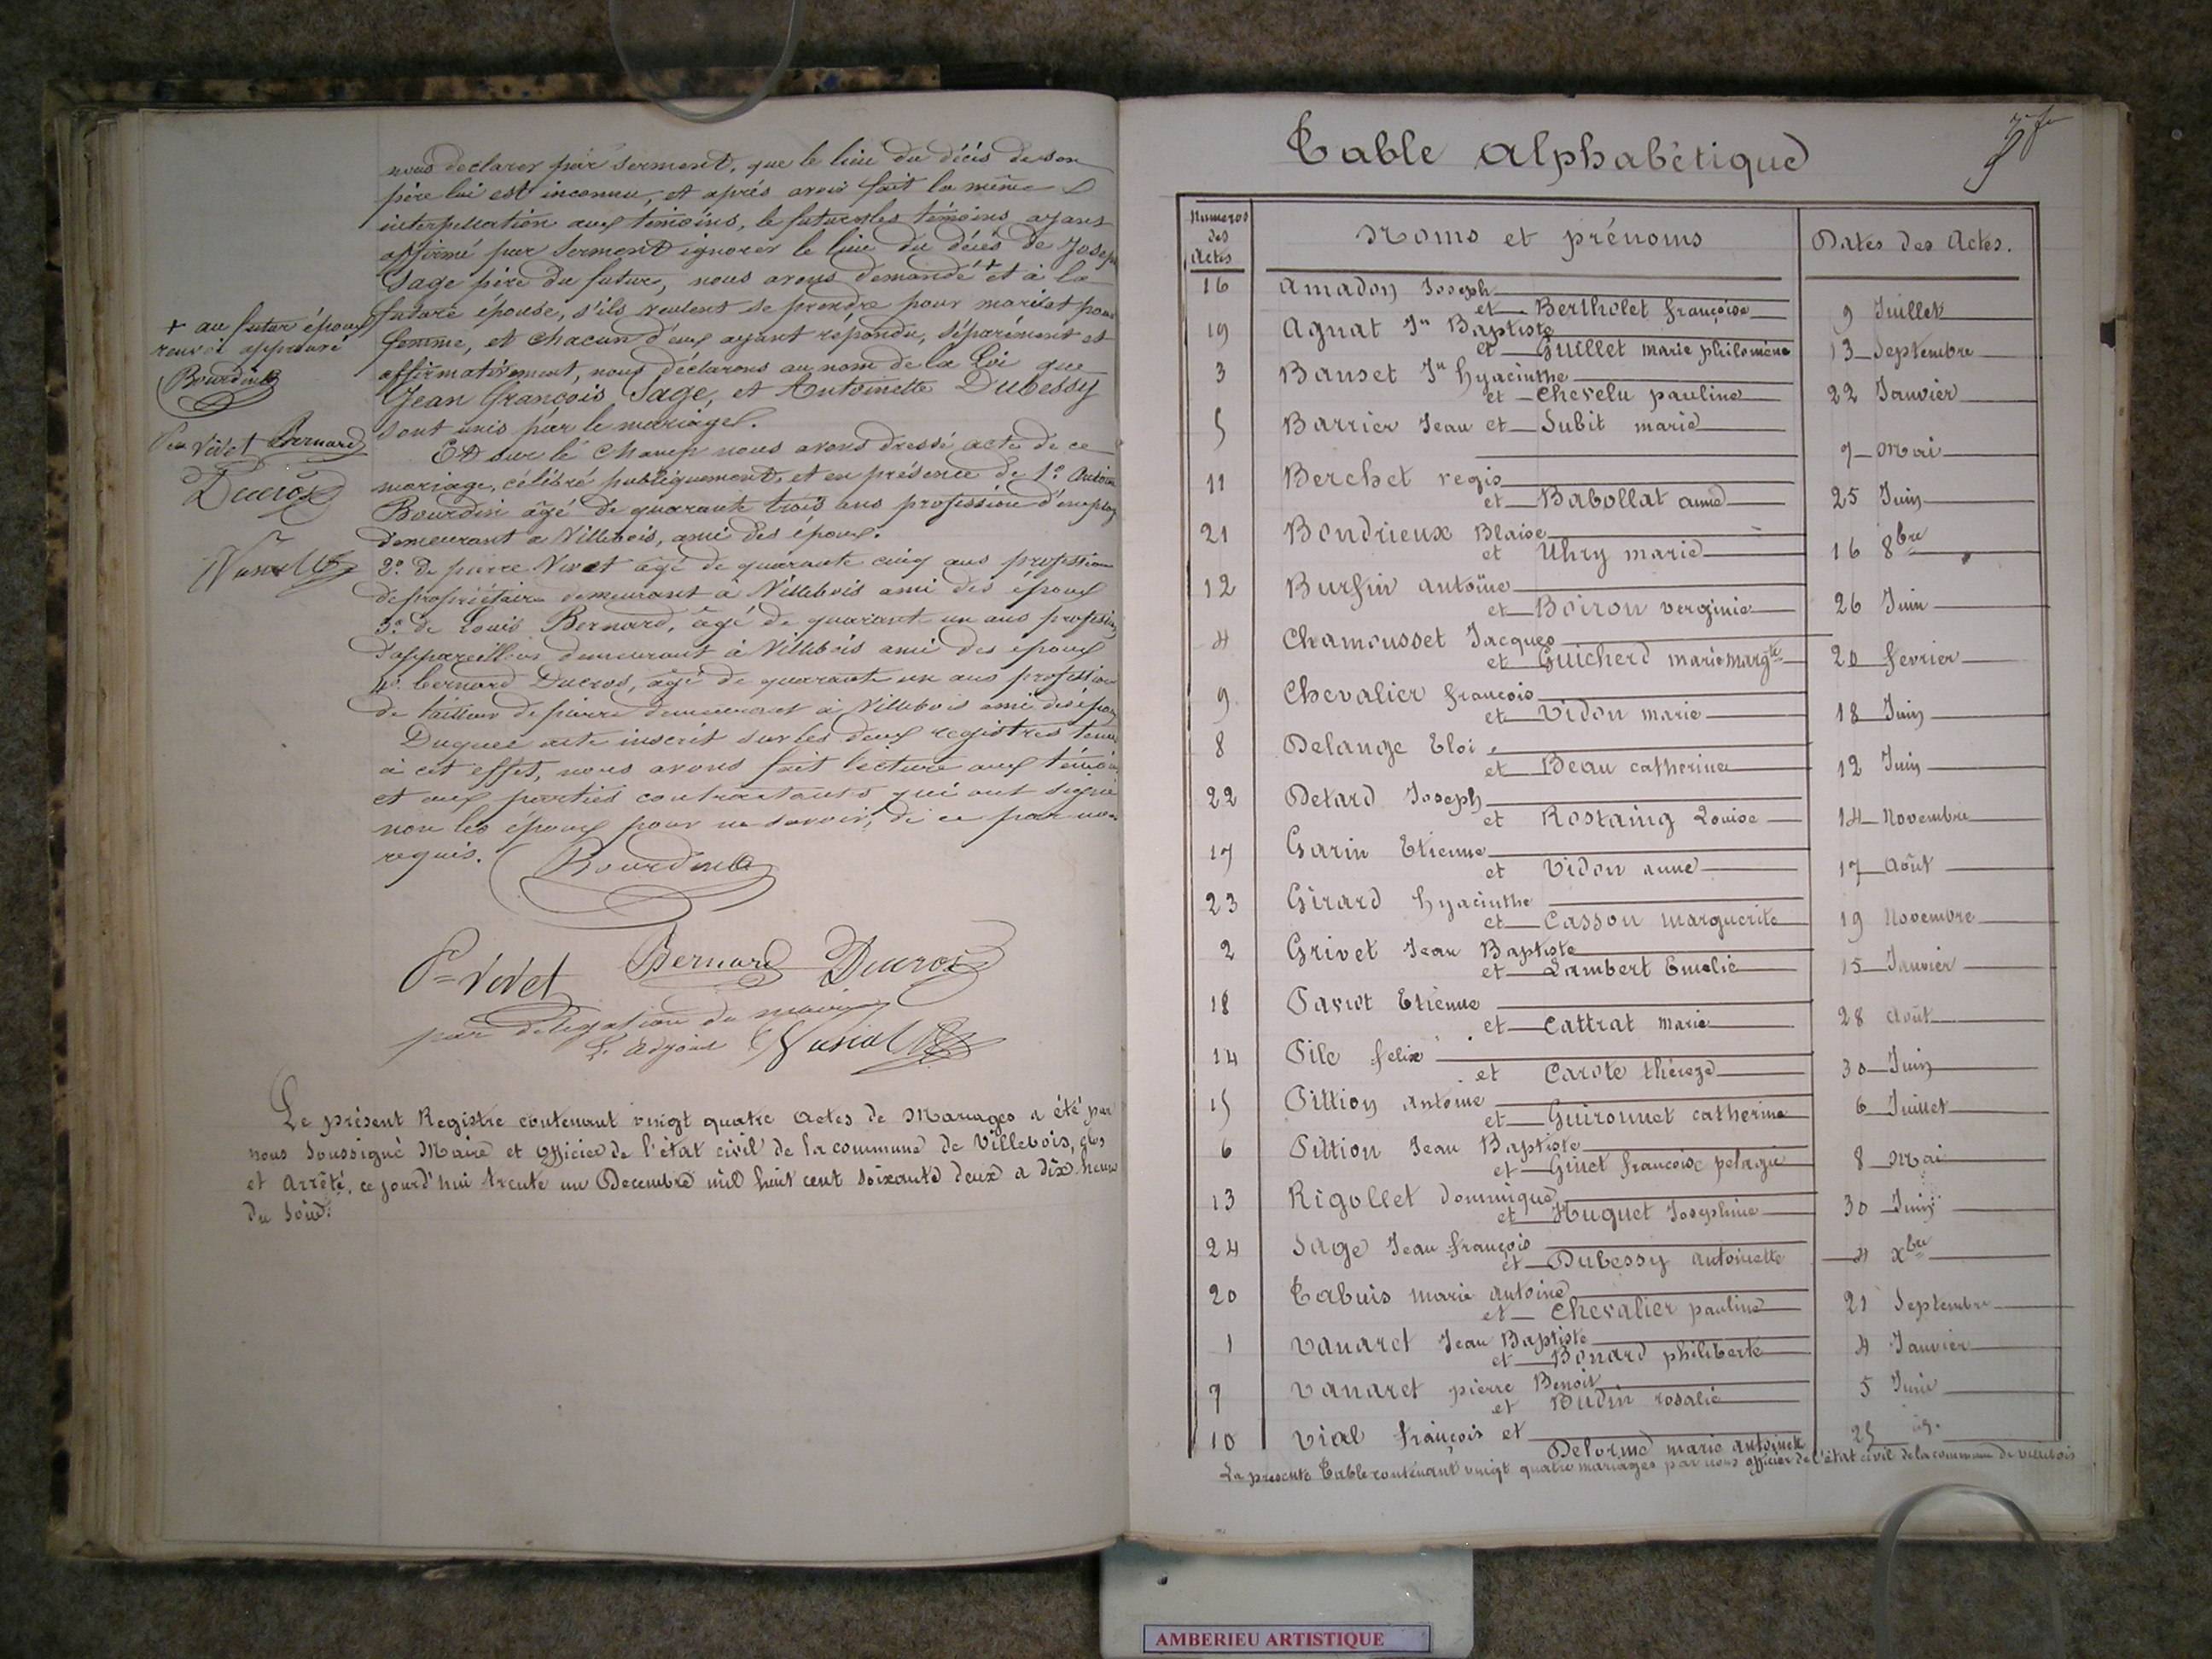 nous declarer par serment, que le lieu du décès de son
père lui est inconnu, et après avoir fait la même
interpellation aux témoins, le futur et les témoins ayant
affirmé par serment ignorer le lieu du décès de Joseph
Sage père du futur, nous avons demandé + et à la
future épouse, s'ils veulent se prendre pour mari et pour
femme, et chacun d'eux ayant repondu, séparément et
affirmativement, nous déclarons au nom de la Loi que
Jean François Sage, et Antoinette Dubessy
sont unis par le mariage.
Et sur le champ nous avons dressé acte de ce
mariage, célébré publiquement, et en présence de 1º Antoine
Bourdin âgé de quarante trois ans profession d'employ
demeurant a Villebois, ami des époux.
2º de pierre Vivet âgé de quarante cinq ans profession
de propriétaire demeurant à Villebois ami des époux
3º de Louis Bernard, âgé de quarant un ans profession
d'appareilleur demeurant à Villebois ami des époux
4º bernard Ducros, âgé de quarante un ans profession
de tailleur de pierre demeurant à Villebois ami des époux
Duquel acte inscrit sur les deux registres tenus
à cet effet, nous avons fait lecture aux témoins
et aux parties contractants qui ont signé
non les époux pour ne savoir, de ce par nous
requis.
Bourdin
Pre Vivet Bernard Ducros
par délégation du maire
L'adjoint
+ au futur époux
renvoi approuvé
Bourdin
Pre Vivet Bernard
Ducros
Le présent Registre contenant vingt quatre Actes de Mariages a été par
nous Soussigné Maire et officier de l'état civil de la commune de Villebois, clos
et Arrêté, ce jourd'hui trente un Decembre mil huit cent soixante deux a dix heures
du soir.
Table Alphabétique
Numeros des Actes
Noms et prénoms
Dates des Actes.
16 Amadon Joseph
et Bertholet françoise 9 Juillet
19 Agnat Jn Baptiste
et Guillet marie philomène 13 Septembre
3 Banset Jn hyacinthe
et Chevelu pauline 22 Janvier
5 Barrier Jean et Subit marie
9 Mai
11 Berchet regis
et Babollat anne 25 Juin
21 Bondrieux Blaise
et Uhry marie 16 8bre
12 Burfin antoine
et Boiron verginie 26 Juin
4 Chamousset Jacques
et Guicherd marie margte 20 fevrier
9 Chevalier françois
et Vidon marie 18 Juin
8 Delange Eloi
et Beau catherine 12 Juin
22 Detard Joseph
et Rostaing Louise 14 Novembre
17 Garin Etienne
et Vidon anne 17 Août
23 Girard hyacinthe
et Casson marguerite 19 Novembre
2 Grivet Jean Baptiste
et Lambert Emelie 15 Janvier
18 Pavist Etienne
et Cattrat marie 28 Août
14 Pile felix
et Carote thérèze 30 Juin
15 Pittion antoine
et Guironnet catherine 6 Juillet
6 Pittion Jean Baptiste
et Ginet françoise pelagie 8 Mai
13 Rigollet Dominique
et Huguet Josephine 30 Juin
24 Sage Jean françois
et Dubessy antoinette 4 Xbre
20 Tabuis marie antoine
et Chevalier pauline 21 Septembre
1 Vanaret Jean Baptiste
et Bonard philiberte 4 Janvier
7 Vanaret pierre Benoit
et Budin rosalie 5 Juin
10 Vial françois et
Delorme marie antoinette 25 id.
La presente Table contenant vingt quatre mariages par nous officier de l'état civil de la commune de villebois
AMBERIEU ARTISTIQUE